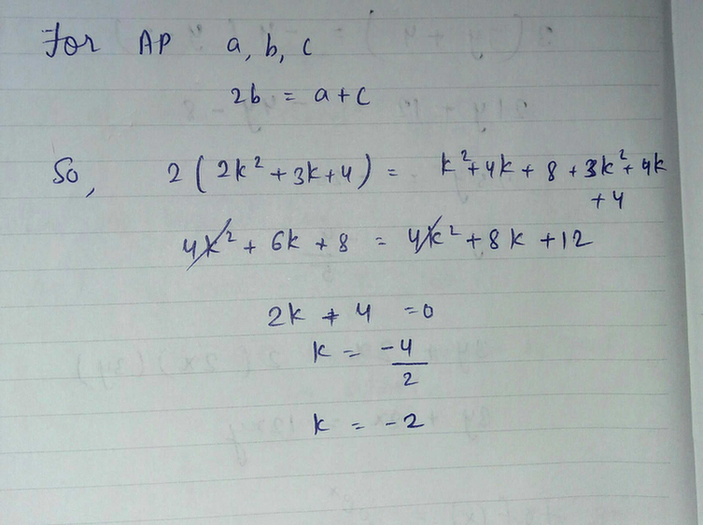 For AP a, b, c
2b = a+c
So, 2(2k²+3k+4) = k²+4k+8+3k²+4k
+4
4k²+6k+8 = 4k²+8k+12
2k+4 =0
k = -4
2
k = -2